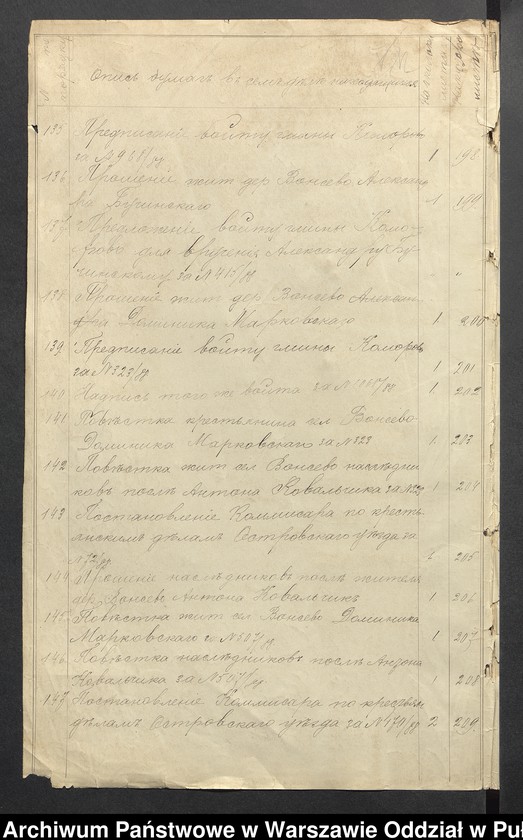 Опись бумагъ въ семъ дѣлѣ находящихся
135 Предписаніе войту гмины Коморово
за №961/89 1 198
136 Прошеніе жит дер Вонсево Александ
ра Бучинскаго 1 199
137 Предложеніе войту гмины Комо-
рово для врученія Александру Бу-
чинскому за №415/89 "
138 Прошеніе жит дер Вонсево
Доминика Марковскаго 1 200
139 Предписаніе войту гмины Коморово
за №323/89 1 201
140 Надпись того же войта за № 1 202
141 Повѣстка крестьянина сел Вонсево
Доминика Марковскаго за №323 1 203
142 Повѣстка жит сел Вонсево наслѣдни
ковъ послѣ Антона Ковальчика за № 1 204
143 Постановленіе Коммисара по кресть
янскимъ дѣламъ Островскаго уѣзда за
№72/89 205
144 Прошеніе наслѣдниковъ послѣ жителя
дер. Вонсево Антона Ковальчикъ 1 206
145 Повѣстка жит сел Вонсево Доминика
Марковскаго №507/89 1 207
146 Повѣстка наслѣдниковъ послѣ Антона
Ковальчика за №507/89 1 208
147 Постановленіе Коммисара по крестьян
дѣламъ Островскаго уѣзда за №179/89 2 209
Archiwum Państwowe w Warszawie Oddział w Puł